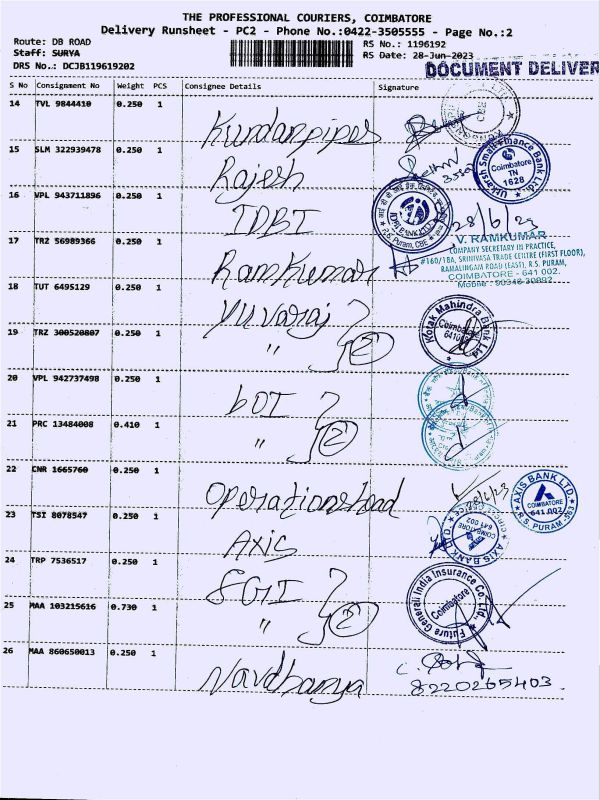 THE PROFESSIONAL COURIERS, COIMBATORE
Delivery Runsheet - PC2 - Phone No.:0422-3505555 - Page No.:2
Route: DB ROAD
RS No.: 1196192
Staff: SURYA
RS Date: 28-Jun-2023
DRS No.: DCJB119619202
DOCUMENT DELIVER
S No Consignment No Weight PCS Consignee Details Signature
14 TVL 9844410 0.250 1 Kundanpipes
15 SLM 322939478 0.250 1 Rajesh
Utkarsh Small Finance Bank Ltd.
Coimbatore
TN
1628
16 VPL 943711896 0.250 1 IDBI
IDBI BANK LTD.
R.S. Puram, CBE
28/6/23
17 TRZ 56989366 0.250 1 Ramkumar
V. RAMKUMAR
COMPANY SECRETARY IN PRACTICE,
#160/18A, SRINIVASA TRADE CENTRE (FIRST FLOOR),
RAMALINGAM ROAD (EAST), R.S. PURAM,
COIMBATORE - 641 002.
18 TUT 6495129 0.250 1 Yuvaraj
Kotak Mahindra Bank Ltd
Coimbatore
19 TRZ 300520807 0.250 1 " 2
20 VPL 942737498 0.250 1 BOI
21 PRC 13484008 0.410 1 " 2
22 CNR 1665760 0.250 1 Operationshead
28/6/23
AXIS BANK LTD.
COIMBATORE
641 002
R.S. PURAM
23 TSI 8078547 0.250 1 AXIS
AXIS BANK LTD.
COIMBATORE
641 002
24 TRP 7536517 0.250 1 FGI
Future Generali India Insurance Co. Ltd.,
Coimbatore
25 MAA 103215616 0.730 1 " 2
26 MAA 860650013 0.250 1 Navdhanya
8220265403